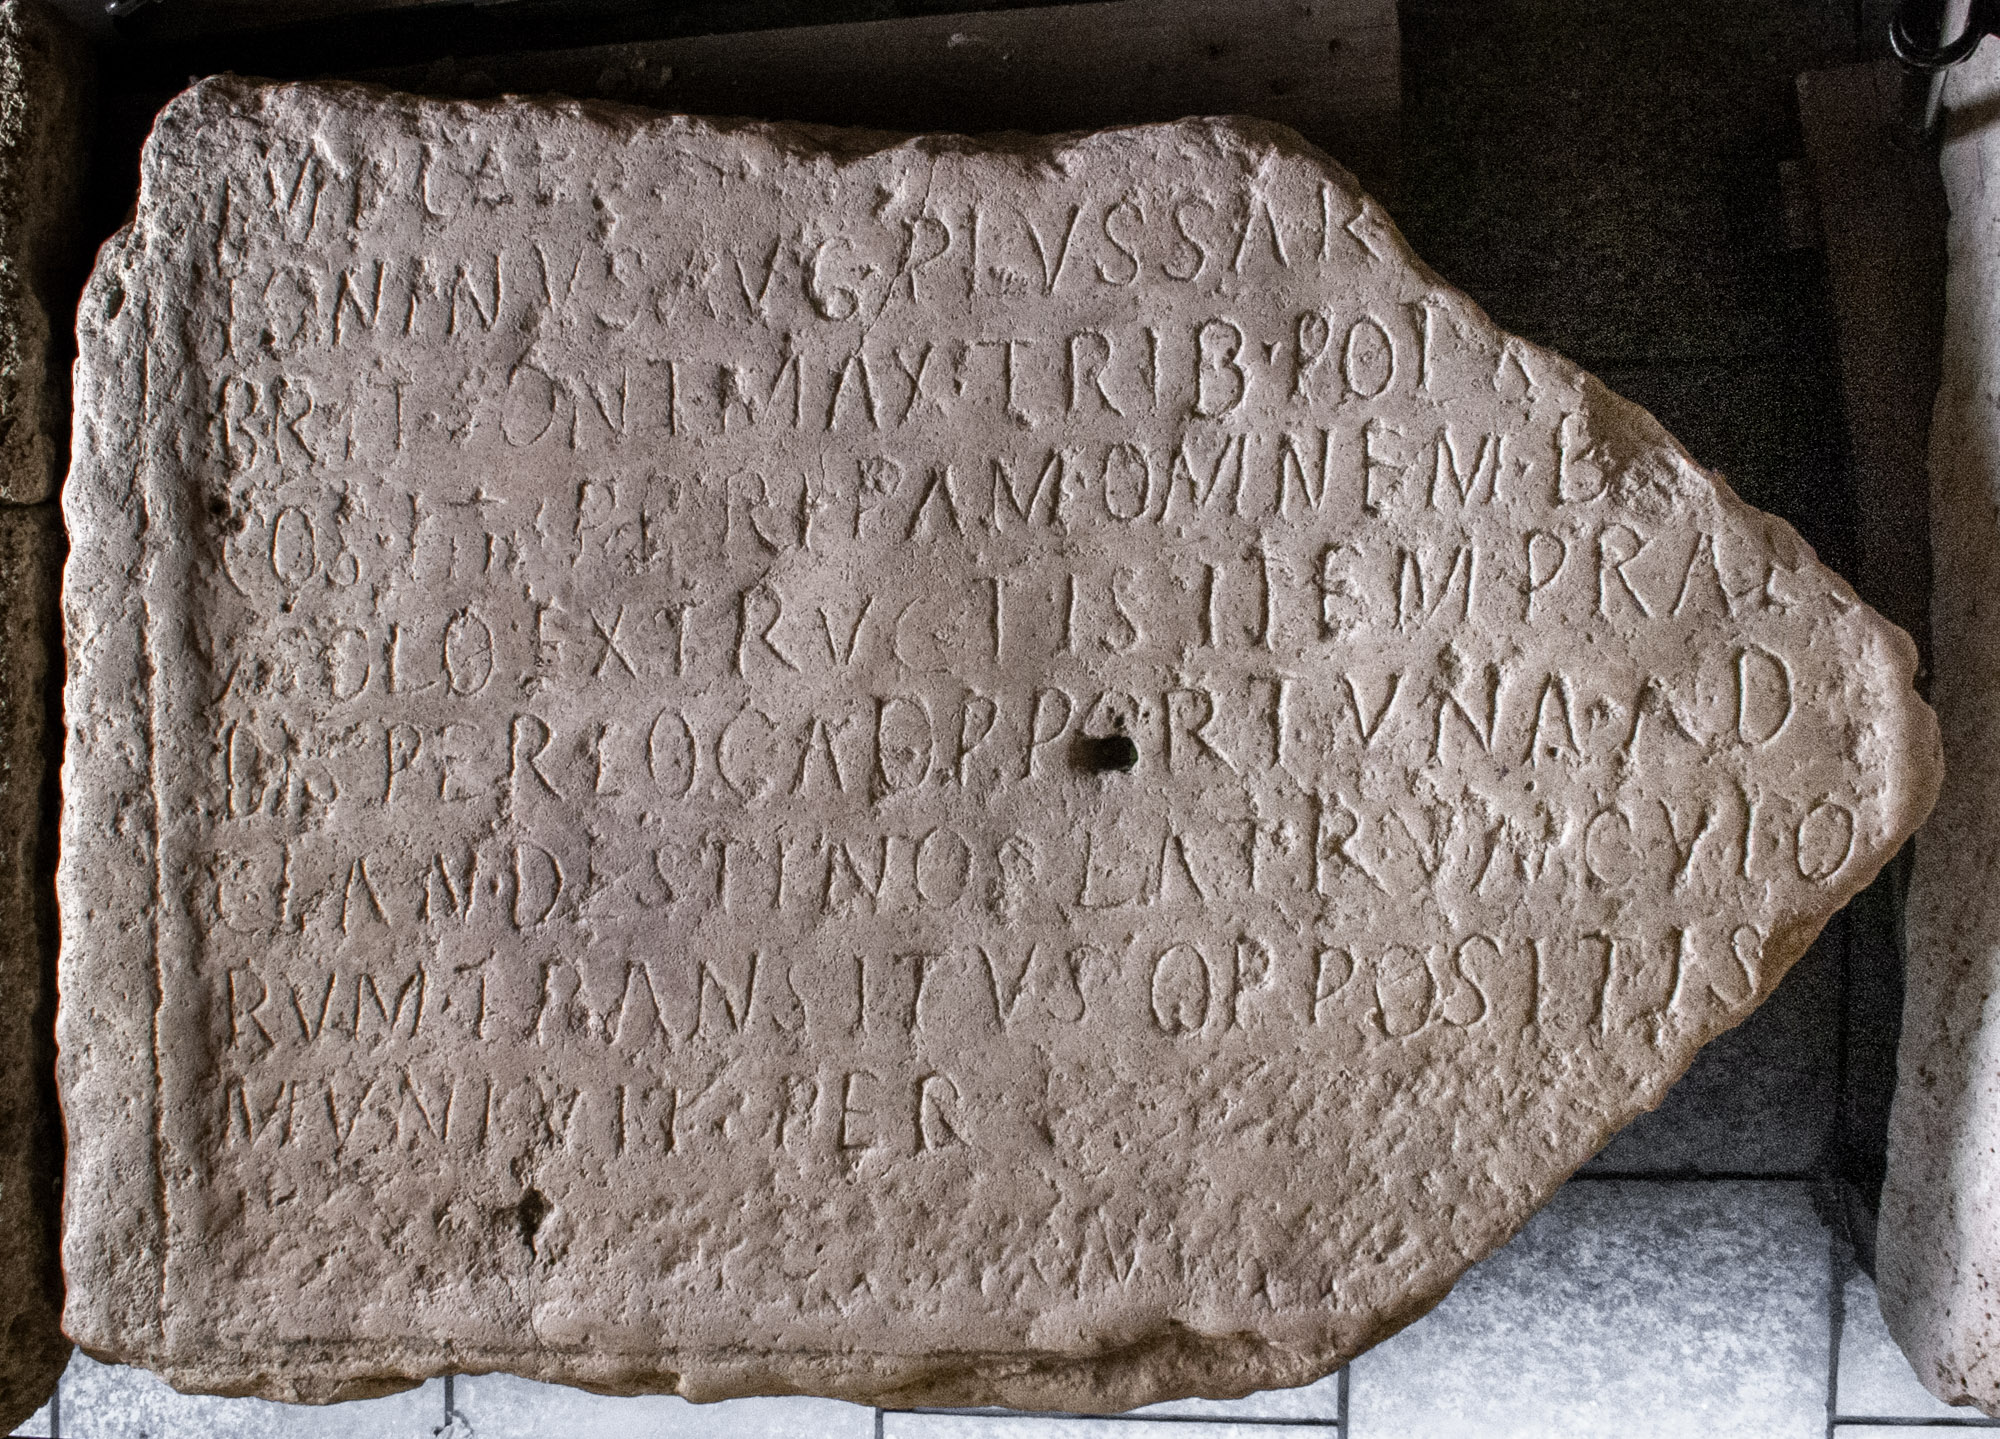 IMP CAE
TONINVS AVG PIVS SAR
BRIT PONT MAX TRIB POT X
COS III PER RIPAM OMNEM B
A SOLO EXTRVCTIS ITEM PRAE
DIS PER LOCA OPPORTVNA AD
CLANDESTINOS LATRVNCVLO
RVM TRANSITVS OPPOSITIS
MVNIVIT PER